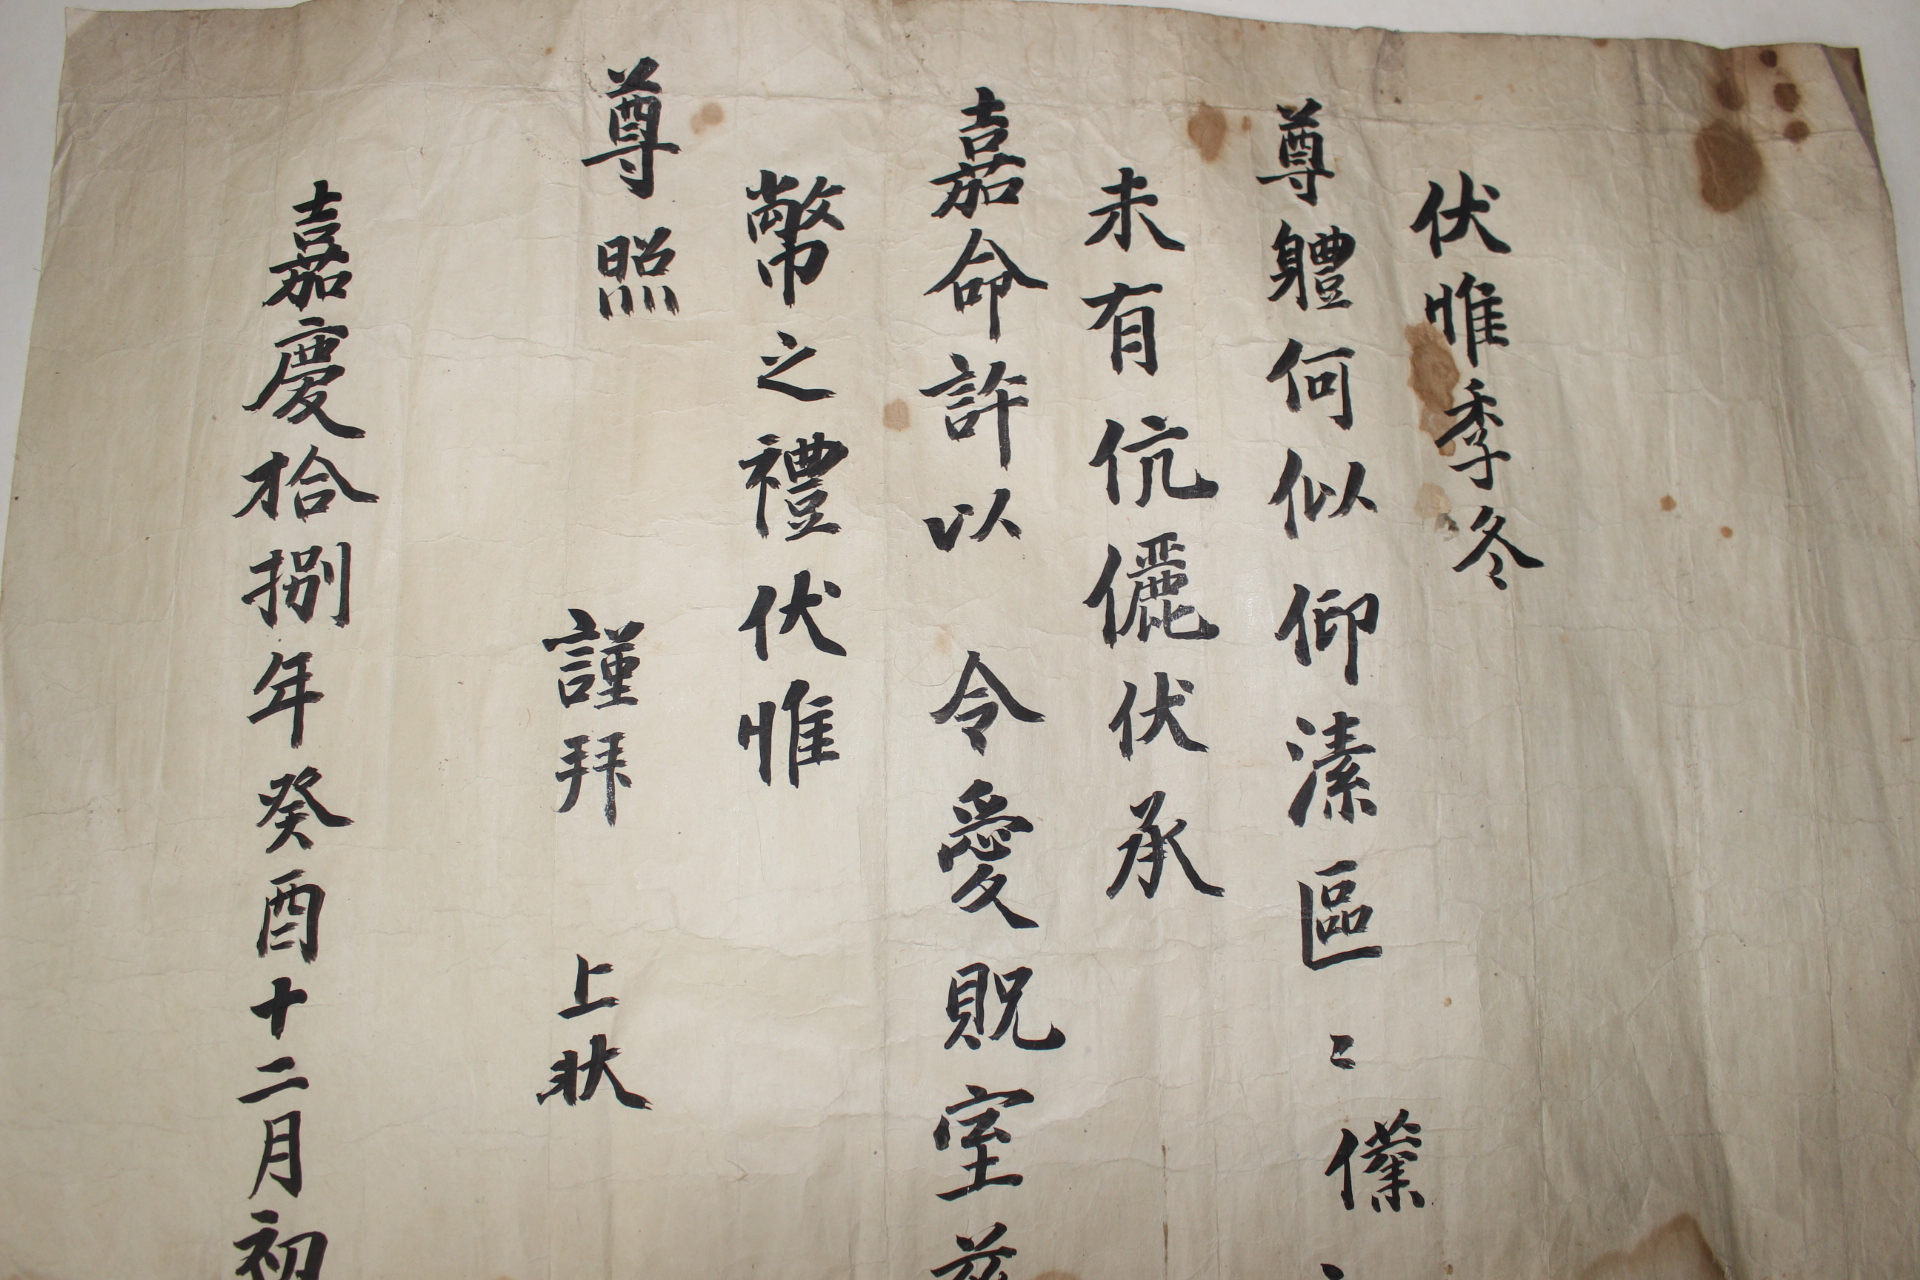 伏惟季冬
尊體何似仰溸區〻僕
未有伉儷伏承
嘉命許以 令愛貺室兹
幣之禮伏惟
尊照 謹拜 上狀
嘉慶拾捌年癸酉十二月初